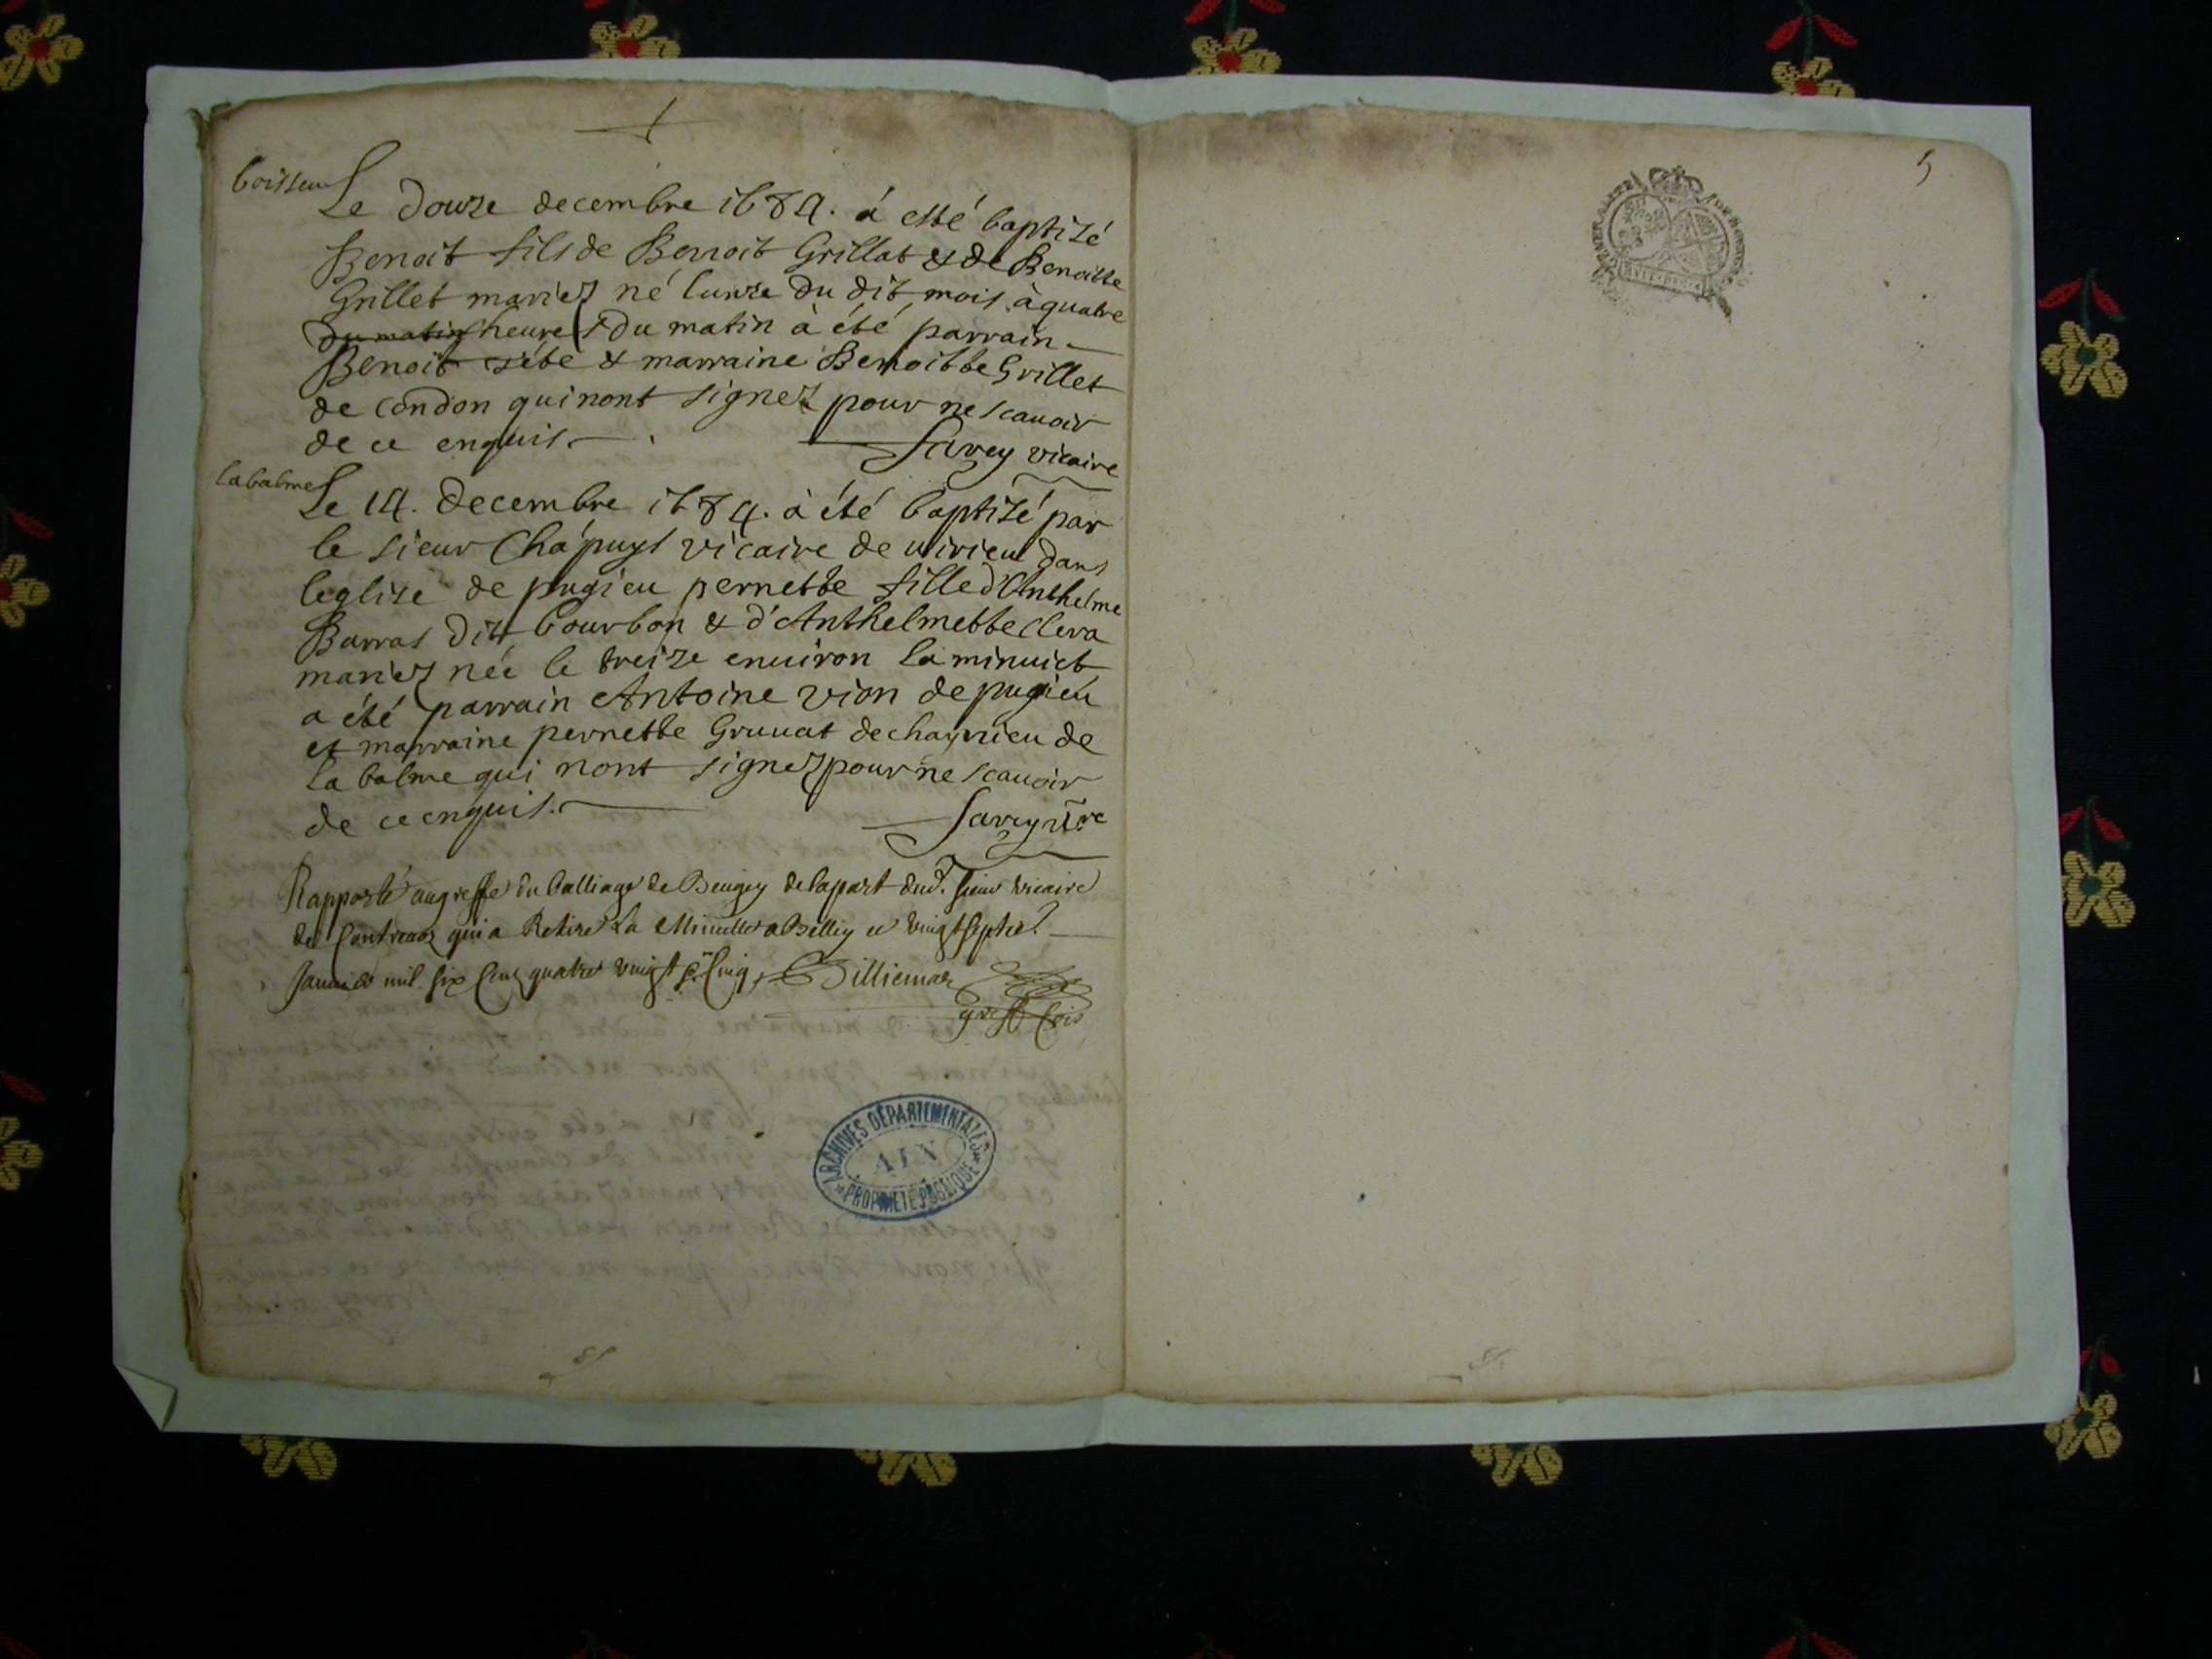 boissieu
Le douze decembre 1684. à esté baptizé
Benoit fils de Benoit Grillat & de Benoitte
Grillet mariez né lunze du dit mois à quatre
du matin heures du matin à été parrain
Benoit & marraine Benoitte Grillet
de condon qui nont signez pour ne scauoir
de ce enquis. Savey vicaire
la balme
Le 14. decembre 1684. à été baptizé par
le sieur Chapuys vicaire de uirieu dans
leglize de pugieu pernette fille d'Anthelme
Barras dit bourbon & d'Anthelmette Clera
mariez née le treize enuiron la minuict
a été parrain Antoine vion de pugieu
et marraine pernette Gruuat de
la balme qui nont signez pour ne scauoir
de ce enquis. Savey
Rapporté au greffe du balliage de Beugey de la part dud. sieur vicaire
de Contreuoz qui a Retiré La Minutte a Belley ce vingt septie.
Januier mil six cens quatre vingt & cinq Billiemaz
5
ARCHIVES DÉPARTEMENTALES
AIN
PROPRIÉTÉ PUBLIQUE